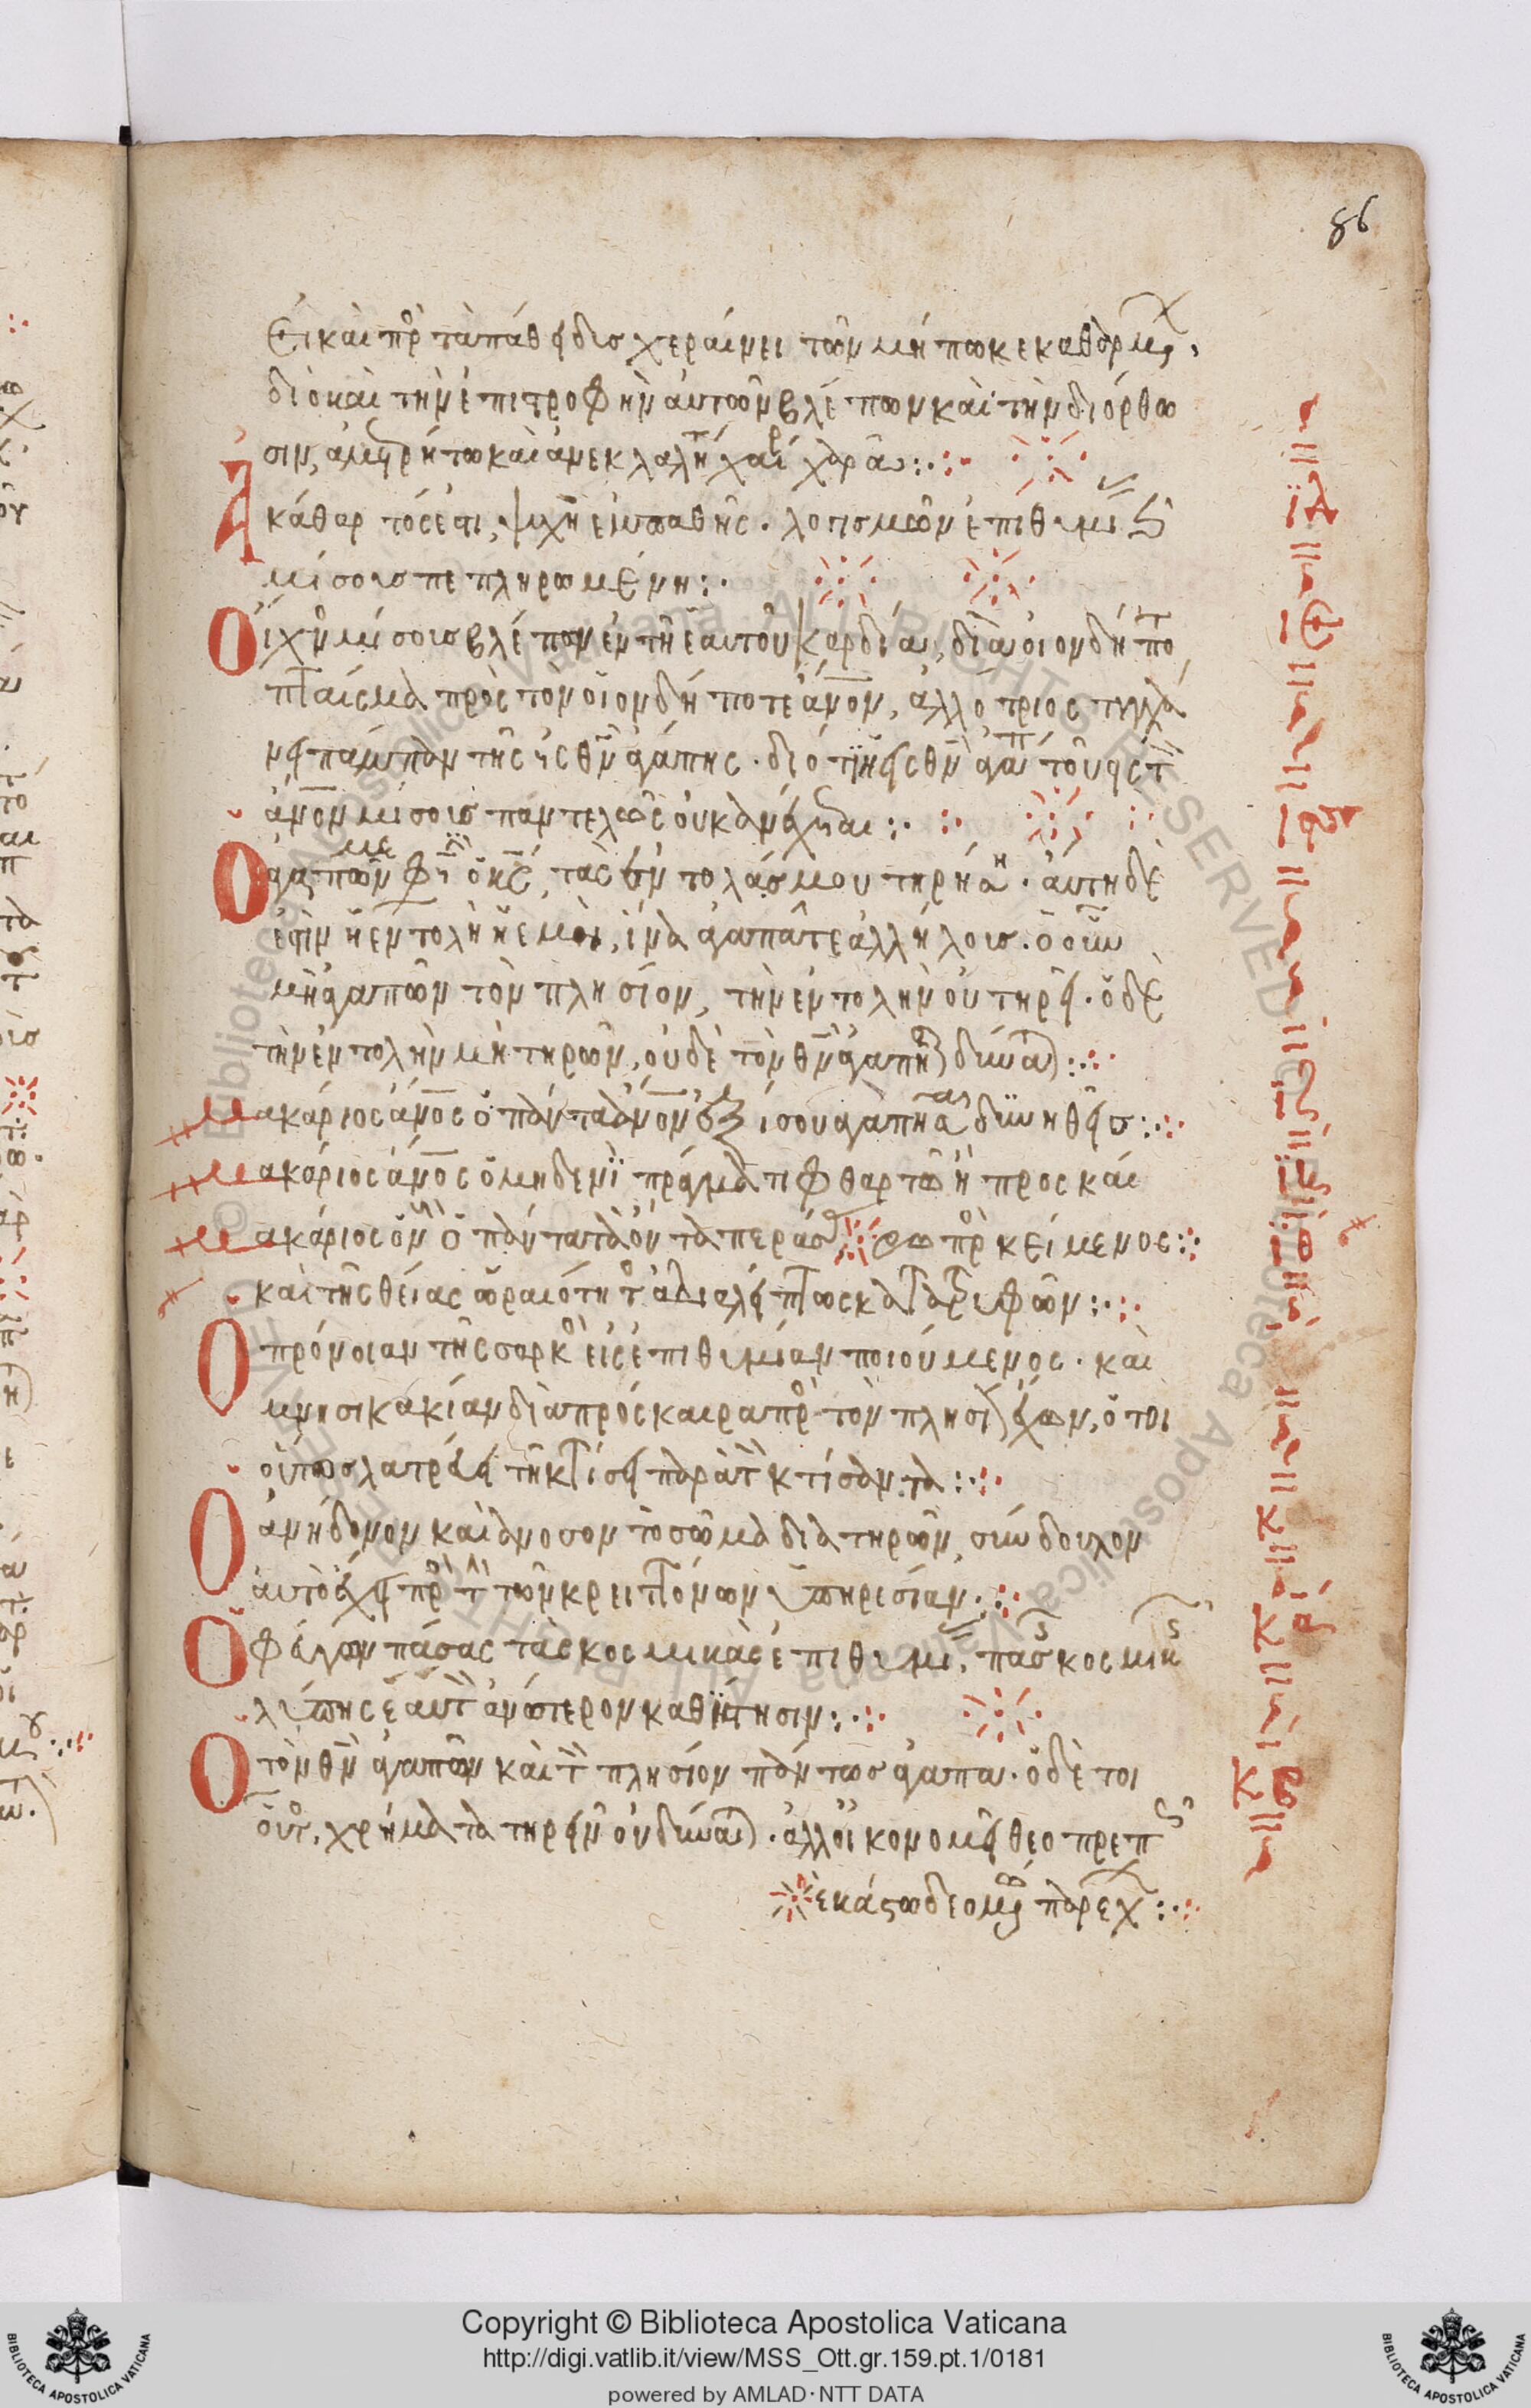 86
Εἰ καὶ πρὸς τὰ πάθει δυσχεραίνει τῶν μήπω κεκαθαρμένων,
διὸ καὶ τὴν ἐπιστροφὴν αὐτῶν βλέπων καὶ τὴν διόρθω
σιν, ἀμετρήτω καὶ ἀνεκλαλήτω χαίρει χαρᾶ:
Ἀκάθαρτός ἐστι, ψυχὴ ἐμπαθής. λογισμῶν ἐπιθυμίας καὶ
μίσους πεπληρωμένη:
Ὁ ἴχνος μίσους βλέπων ἐν τῆ ἑαυτοῦ καρδία, διὰ οἱονδήποτε
πταίσμα πρὸς τὸν οἱονδήποτε ἄνον, ἀλλότριος τυγχά
νει πάμπαν τῆς εἰς θν ἀγάπης. διότι ἡ εἰς θν ἀγάπη τοῦ εἰς τὸν
ἄνον μίσους παντελῶς οὐκ ἀνέχεται:
Ὁ ἀγαπῶν με φησὶν ὁ κς, τὰς ἐντολάς μου τηρήσει. αὕτη δὲ
ἐστὶν ἡ ἐντολὴ ἡ ἐμὴ, ἵνα ἀγαπᾶτε ἀλλήλους. ὁ οὖν
μὴ ἀγαπῶν τὸν πλησίον, τὴν ἐντολὴν οὐ τηρεῖ. ὁ δὲ
τὴν ἐντολὴν μὴ τηρῶν, οὐδὲ τὸν θν ἀγαπῆσαι δύναται:
Μακάριος ἄνος ὁ πάντα ἄνον ἐξ ἴσου ἀγαπῆσαι δυνηθεὶς:
Μακάριος ἄνος ὁ μηδενὶ πράγματι φθαρτῶ ἢ προσκαί
Μακάριος ὁ νοῦς ὁ πάντα τὰ ὄντα περάσας ρω προσκείμενος:
καὶ τῆς θείας ὡραιότητος ἀδιαλείπτως κατατρυφῶν:
Ὁ πρόνοιαν τῆς σαρκὸς εἰς ἐπιθυμίαν ποιούμενος. καὶ
μνησικακίαν διὰ πρόσκαιρα πρὸς τὸν πλησίον ἔχων, ὁ τοι
οῦτος λατρεύει τῆ κτίσει παρὰ τὸν κτίσαντα:
Ὁ ἀνήδονον καὶ ἄνοσον τὸ σῶμα διατηρῶν, σύνδουλον
αὐτὸ ἔχει πρὸς τὴν τῶν κρειττόνων ὑπηρεσίαν:
Ὁ φεύγων πάσας τὰς κοσμικὰς ἐπιθυμίας, πάσης κοσμικῆς
λύπης ἑαυτὸν ἀνώτερον καθίστησιν:
Ὁ τὸν θν ἀγαπῶν καὶ τὸν πλησίον πάντως ἀγαπᾶ. ὁ δὲ τοι
οῦτος, χρήματα τηρεῖν οὐ δύναται. ἀλλ' οἰκονομεῖ θεοπρεπῶς
ἑκάστω δεομένω παρέχων:
Copyright © Biblioteca Apostolica Vaticana
http://digi.vatlib.it/view/MSS_Ott.gr.159.pt.1/0181
powered by AMLAD·NTT DATA